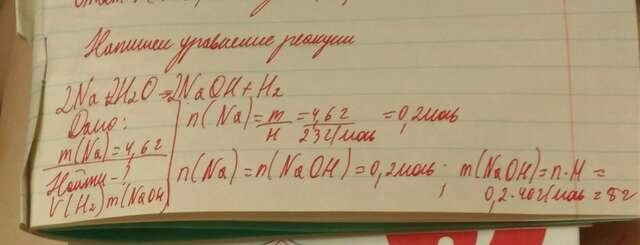 Напишем уравнение реакции
2Na+2H2O=2NaOH+H2
Дано:
m(Na)=4,6г
Найти-?
V(H2) m(NaOH)
n(Na)=m/M=4,6г/23г/моль=0,2моль
n(Na)=n(NaOH)=0,2моль; m(NaOH)=n·M=
0,2·40г/моль=8г